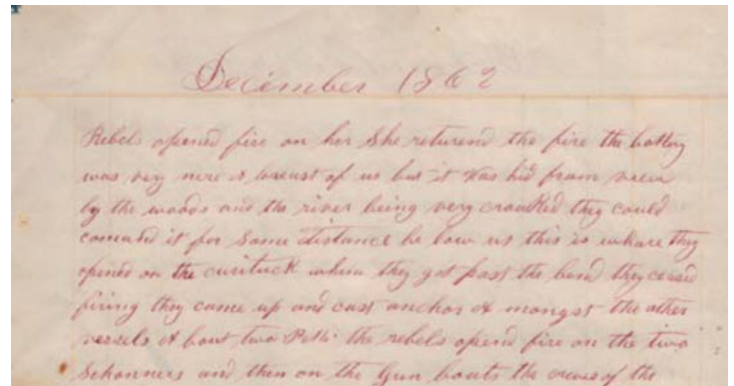 December 1862
Rebels opened fire on her She returend the fire the battery
was very nere a breast of us but it was hid from view
by the woods and the river being very croulked they could
comand it for Some distance be low us this is whare they
opened on the curituck when they got pass the bend they ceased
firing they came up and cast anchor A mongst the other
vessels A bout two P.M. the rebels opend fire on the two
Schonners and then on the Gun boats the crews of the